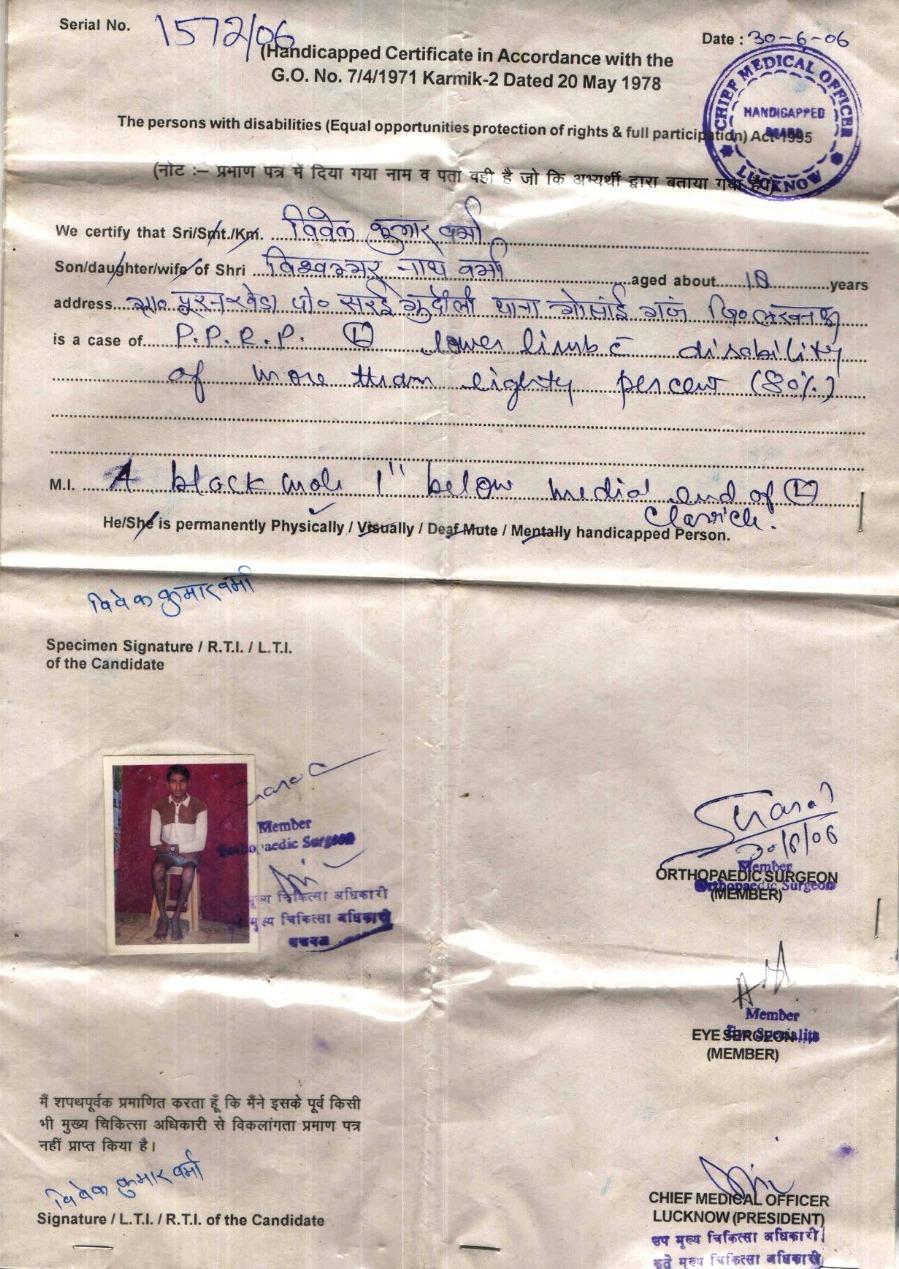 Serial No. 1572/06
Date : 30-6-06
(Handicapped Certificate in Accordance with the
G.O. No. 7/4/1971 Karmik-2 Dated 20 May 1978
CHIEF MEDICAL OFFICER
HANDICAPPED
LUCKNOW
The persons with disabilities (Equal opportunities protection of rights & full participation) Act-1995
(नोट :– प्रमाण पत्र में दिया गया नाम व पता वही है जो कि अभ्यर्थी द्वारा बताया गया है।)
We certify that Sri/Smt./Km. विवेक कुमार वर्मा
Son/daughter/wife of Shri विश्वम्भर नाथ वर्मा aged about 18 years
address सा० पूरनखेडा पो० सरई गुदौली थाना गोसाई गंज जि० लखनऊ
is a case of P.P.R.P. (L) lower limb c̄ disability
of more than eighty percent (80%)
M.I. A black mole 1" below medial end of (L)
Clavicle.
He/She is permanently Physically / Visually / Deaf Mute / Mentally handicapped Person.
विवेक कुमार वर्मा
Specimen Signature / R.T.I. / L.T.I.
of the Candidate
Member
Orthopaedic Surgeon
मुख्य चिकित्सा अधिकारी
मुख्य चिकित्सा अधिकारी
लखनऊ
30/6/06
Member
ORTHOPAEDIC SURGEON
Orthopaedic Surgeon
(MEMBER)
Member
EYE SURGEON
Eye Specialist
(MEMBER)
मैं शपथपूर्वक प्रमाणित करता हूँ कि मैंने इसके पूर्व किसी
भी मुख्य चिकित्सा अधिकारी से विकलांगता प्रमाण पत्र
नहीं प्राप्त किया है।
विवेक कुमार वर्मा
Signature / L.T.I. / R.T.I. of the Candidate
CHIEF MEDICAL OFFICER
LUCKNOW (PRESIDENT)
उप मुख्य चिकित्सा अधिकारी
कृते मुख्य चिकित्सा अधिकारी